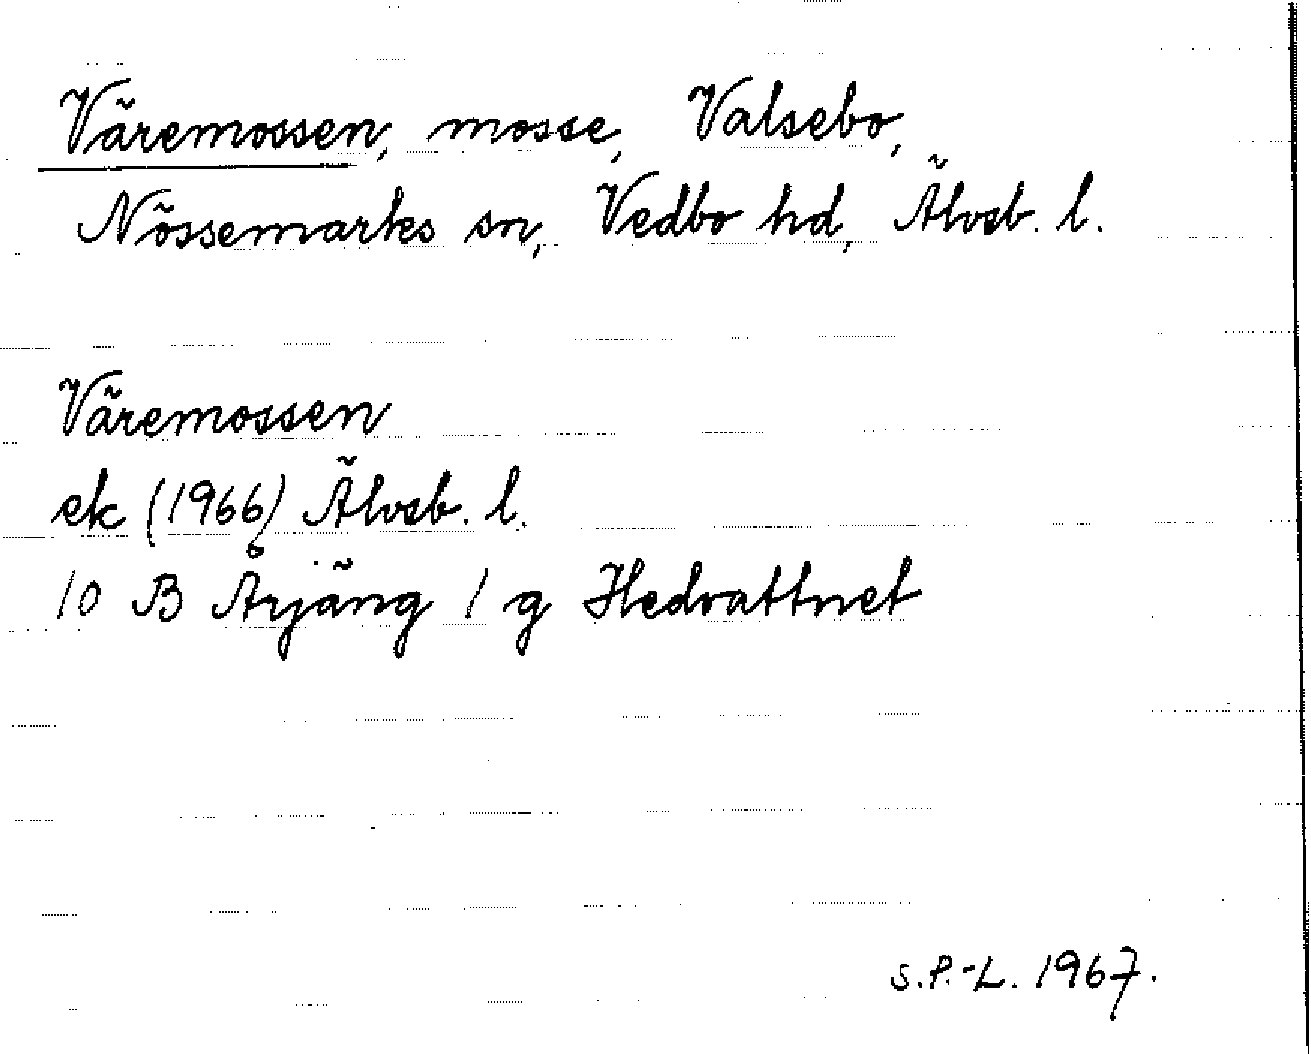 Väremossen, mosse, Valsebo,
Nössemarks sn, Vedbo hd, Älvsb. l.
Väremossen
ek (1966) Älvsb. l.
10 B Årjäng 1 g Hedvattnet
S.P.-L. 1967.